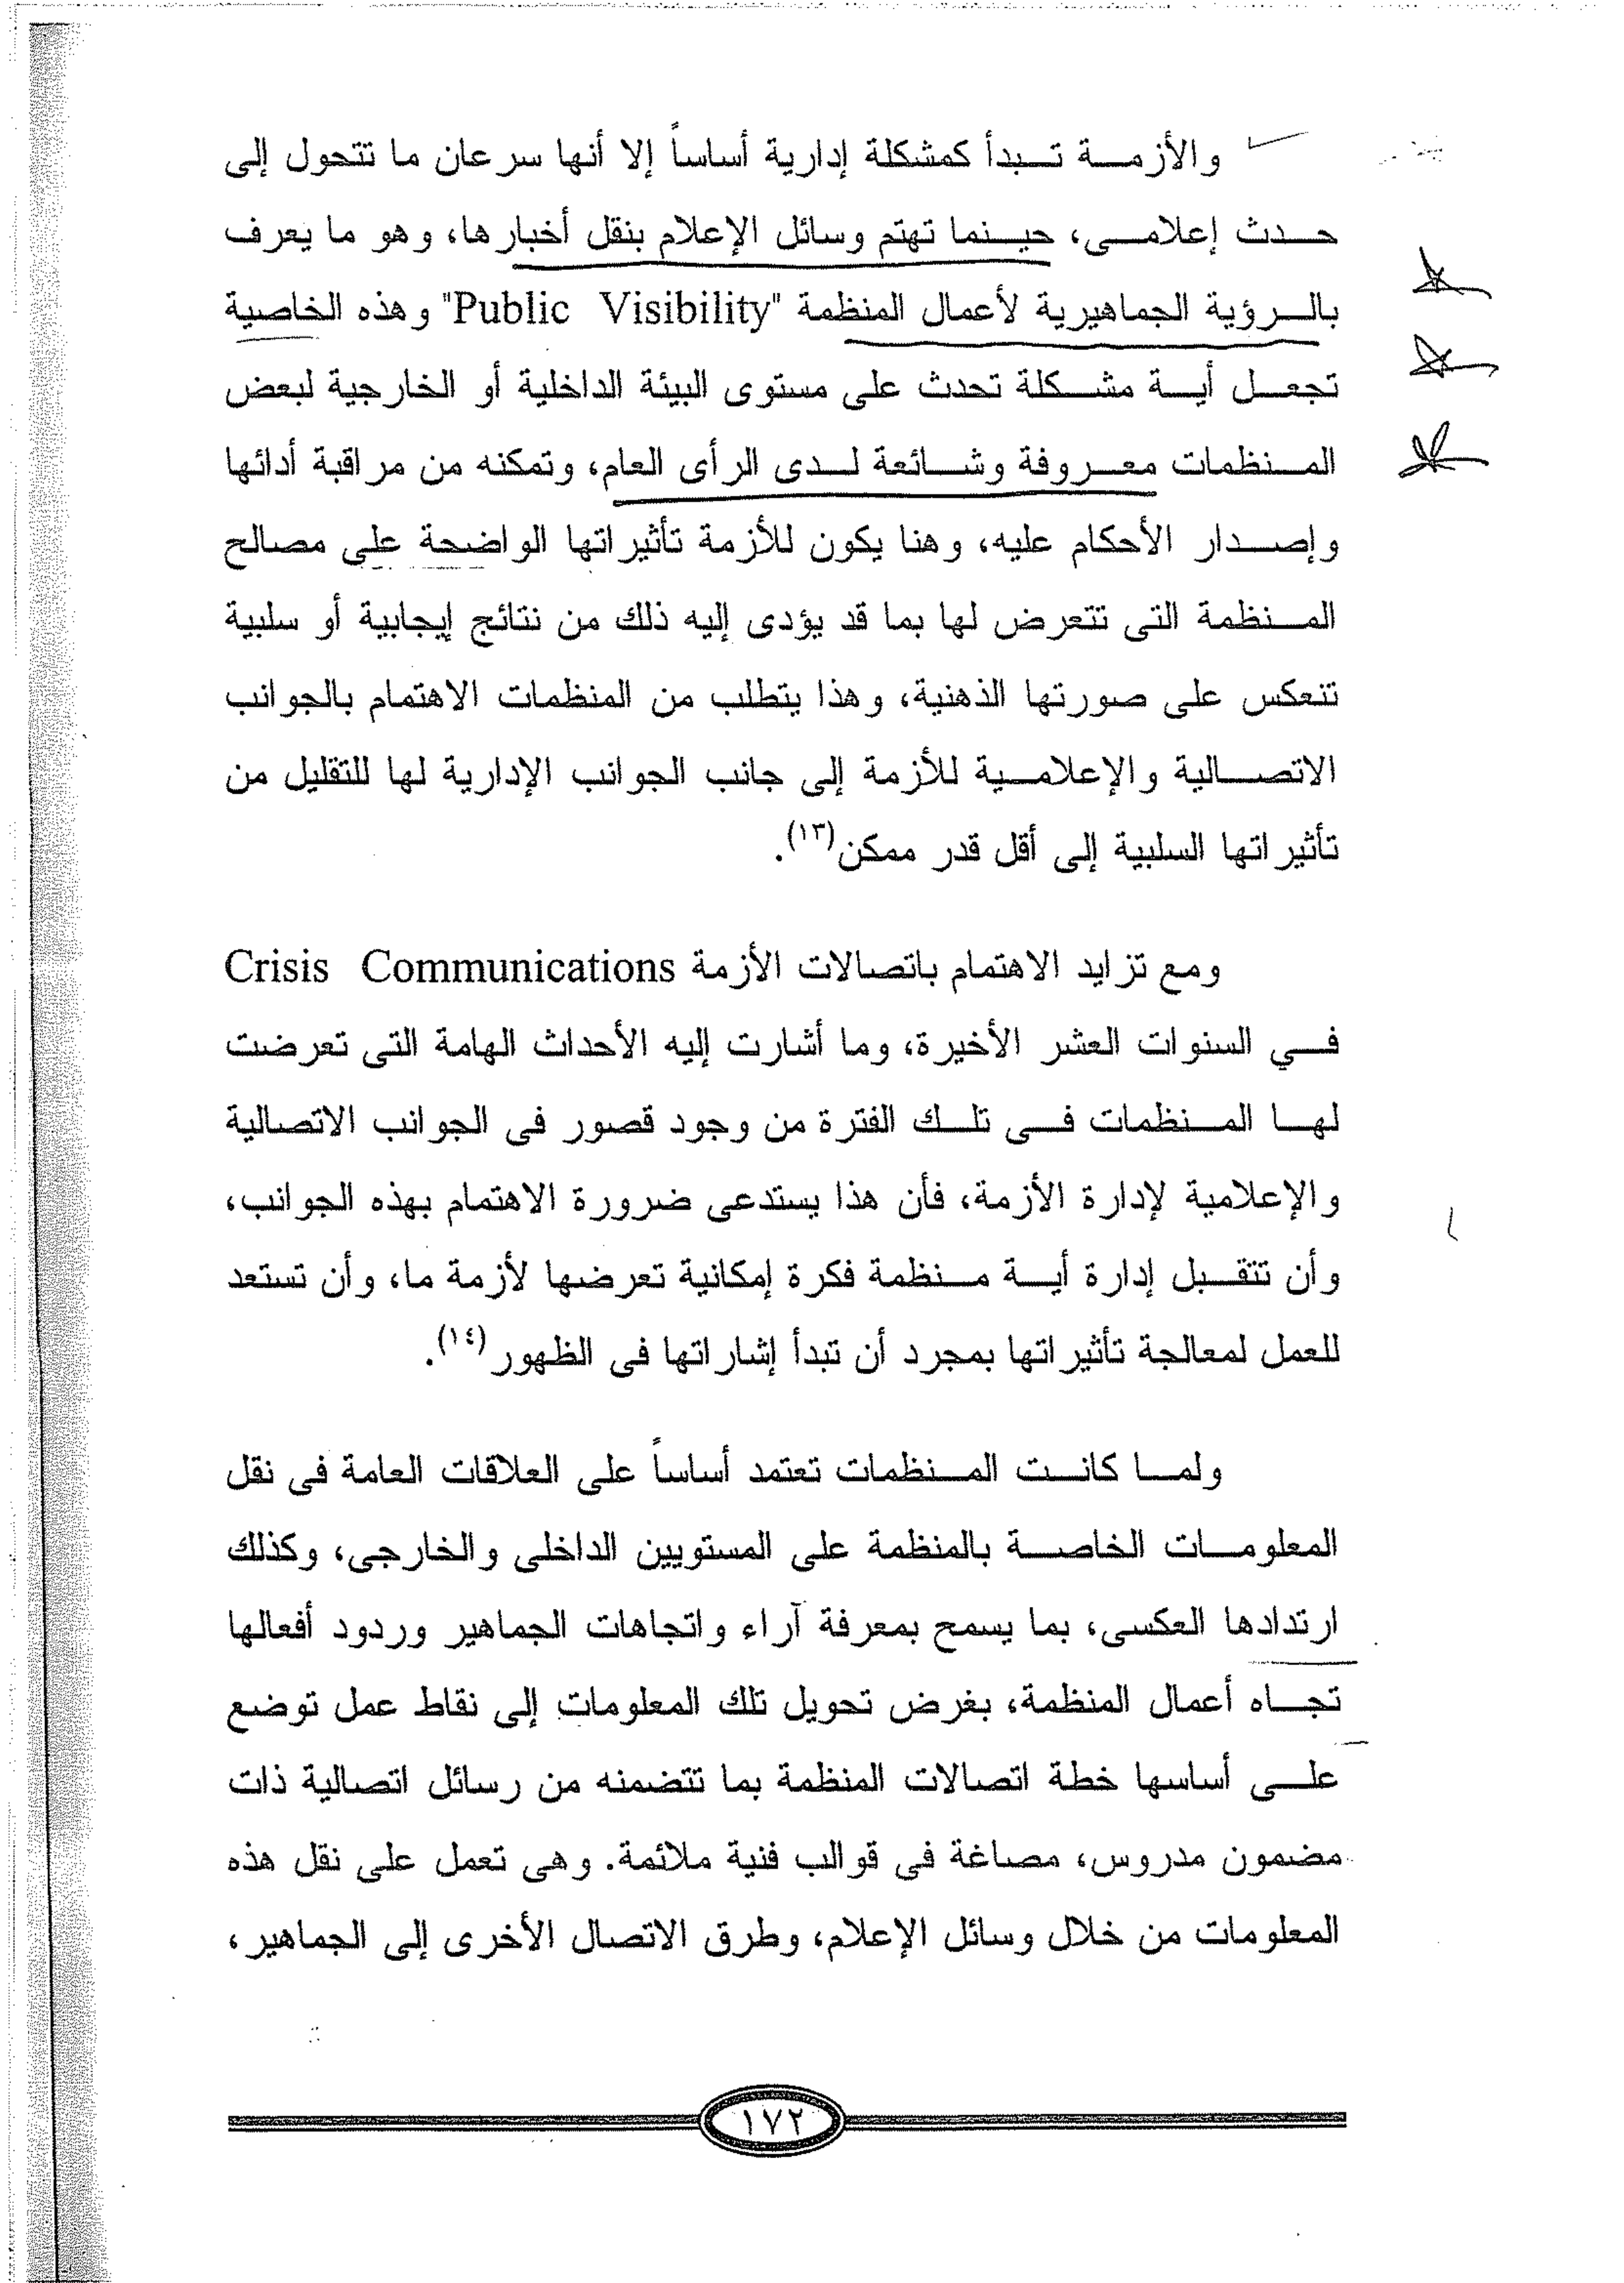 والأزمة تبدأ كمشكلة إدارية أساساً إلا أنها سرعان ما تتحول إلى
حدث إعلامى، حينما تهتم وسائل الإعلام بنقل أخبارها، وهو ما يعرف
بالرؤية الجماهيرية لأعمال المنظمة "Public Visibility" وهذه الخاصية
تجعل أية مشكلة تحدث على مستوى البيئة الداخلية أو الخارجية لبعض
المنظمات معروفة وشائعة لدى الرأى العام، وتمكنه من مراقبة أدائها
وإصدار الأحكام عليه، وهنا يكون للأزمة تأثيراتها الواضحة على مصالح
المنظمة التى تتعرض لها بما قد يؤدى إليه ذلك من نتائج إيجابية أو سلبية
تنعكس على صورتها الذهنية، وهذا يتطلب من المنظمات الاهتمام بالجوانب
الاتصالية والإعلامية للأزمة إلى جانب الجوانب الإدارية لها للتقليل من
تأثيراتها السلبية إلى أقل قدر ممكن(١٣).
ومع تزايد الاهتمام باتصالات الأزمة Crisis Communications
في السنوات العشر الأخيرة، وما أشارت إليه الأحداث الهامة التى تعرضت
لها المنظمات فى تلك الفترة من وجود قصور فى الجوانب الاتصالية
والإعلامية لإدارة الأزمة، فأن هذا يستدعى ضرورة الاهتمام بهذه الجوانب،
وأن تتقبل إدارة أية منظمة فكرة إمكانية تعرضها لأزمة ما، وأن تستعد
للعمل لمعالجة تأثيراتها بمجرد أن تبدأ إشاراتها فى الظهور(١٤).
ولما كانت المنظمات تعتمد أساساً على العلاقات العامة فى نقل
المعلومات الخاصة بالمنظمة على المستويين الداخلى والخارجى، وكذلك
ارتدادها العكسى، بما يسمح بمعرفة آراء واتجاهات الجماهير وردود أفعالها
تجاه أعمال المنظمة، بغرض تحويل تلك المعلومات إلى نقاط عمل توضع
على أساسها خطة اتصالات المنظمة بما تتضمنه من رسائل اتصالية ذات
مضمون مدروس، مصاغة فى قوالب فنية ملائمة. وهى تعمل على نقل هذه
المعلومات من خلال وسائل الإعلام، وطرق الاتصال الأخرى إلى الجماهير،
١٧٢